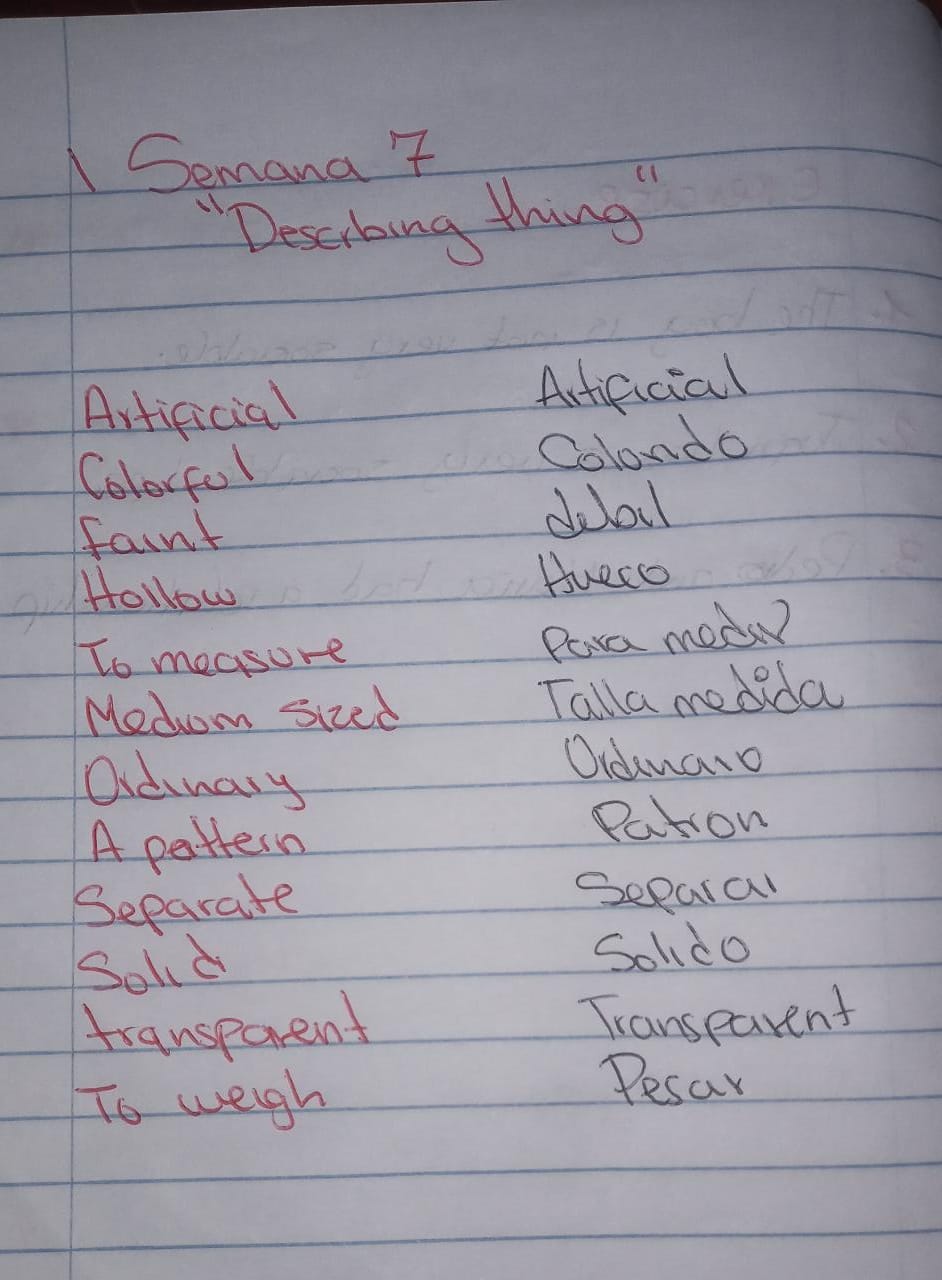 Semana 7
"Describing thing"
Artificial Artificial
Colorful Colorido
faint debil
Hollow Hueco
To measure Para medir
Medium sized Talla medida
Ordinary Ordinario
A pattern Patron
Separate Separar
Solid Solido
transparent Transparent
To weigh Pesar